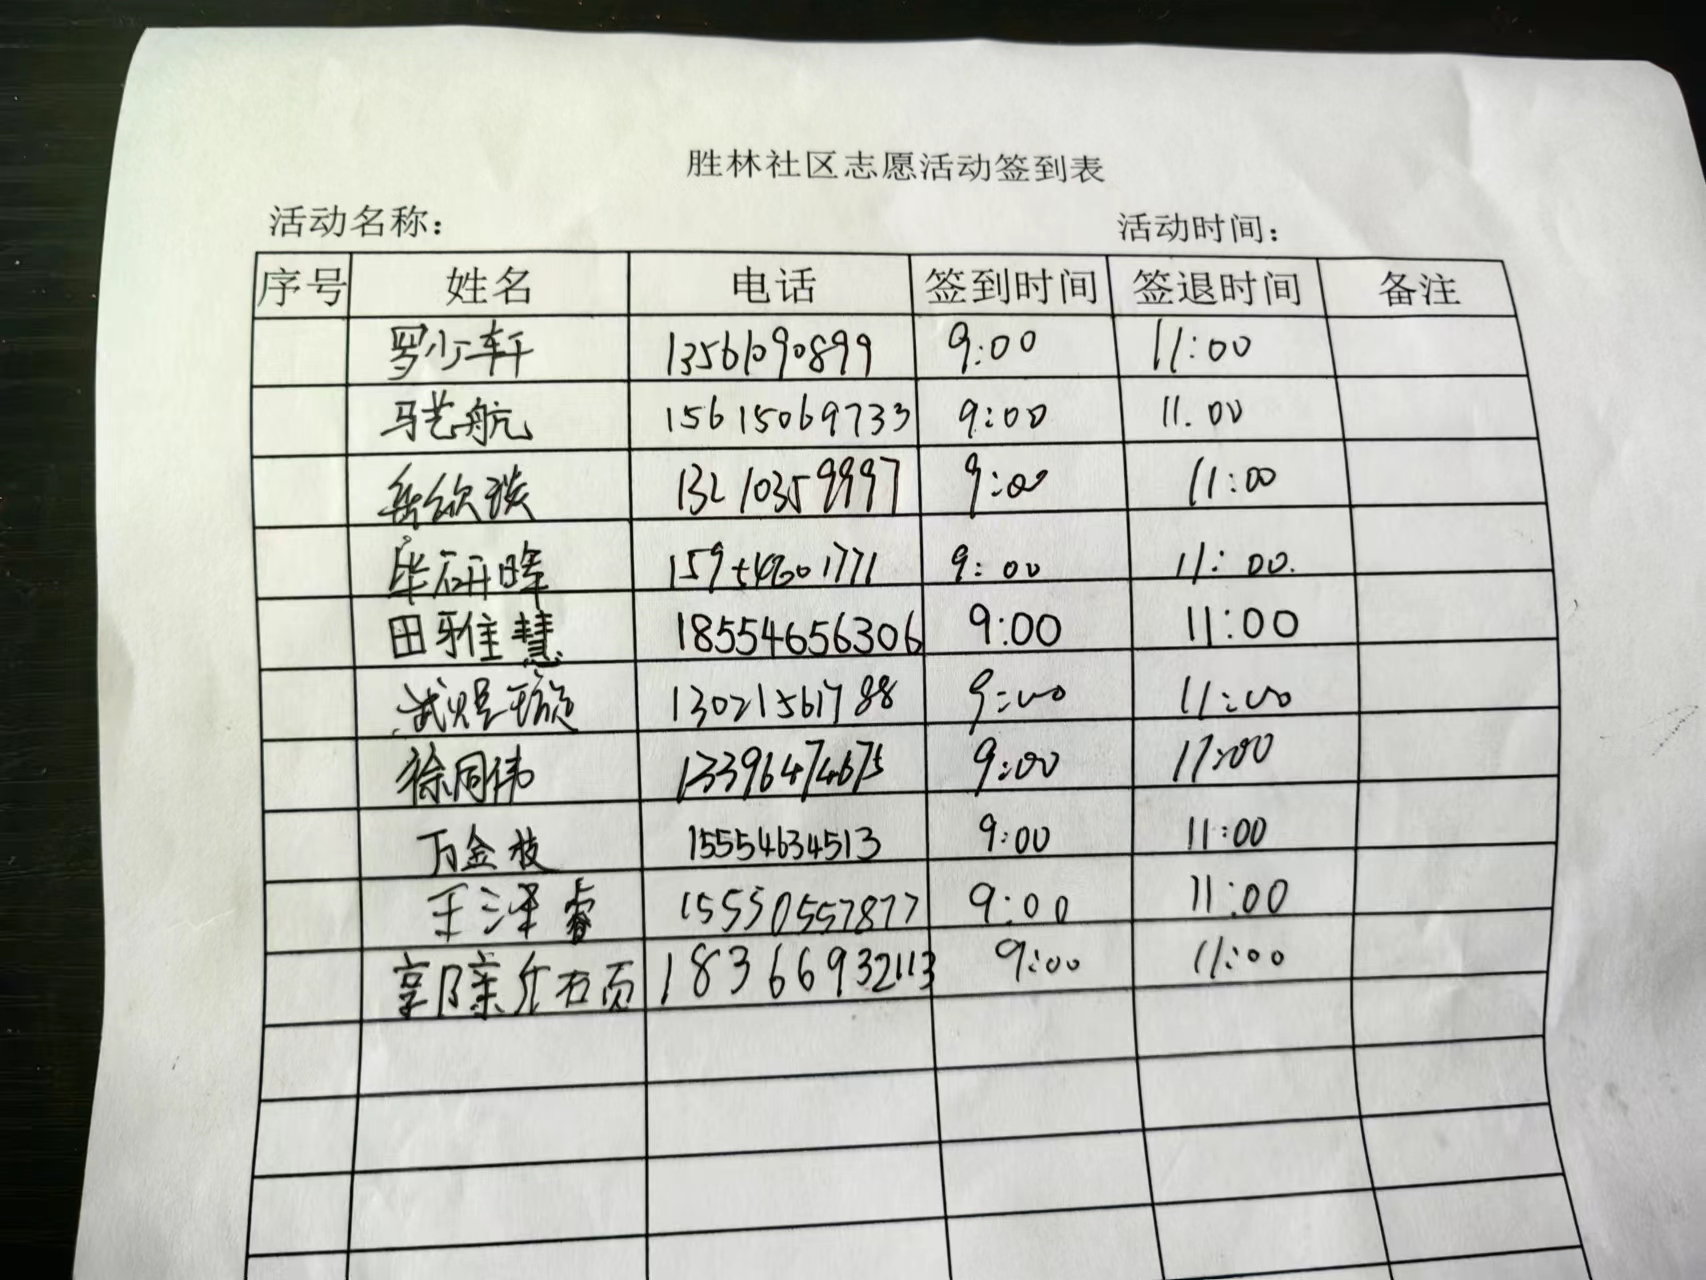 胜林社区志愿活动签到表
活动名称： 活动时间：
序号 姓名 电话 签到时间 签退时间 备注
罗少轩 13561090899 9:00 11:00
马艺航 15615069733 9:00 11.00
岳欣谈 13210359997 9:00 11:00
毕研晖 1771 9:00 11:00.
田雅慧 18554656306 9:00 11:00
武煜璇 13021561788 9:00 11:00
徐同伟 13396474675 9:00 11:00
万金枝 15554634513 9:00 11:00
王泽睿 15550557877 9:00 11:00
18366932113 9:00 11:00